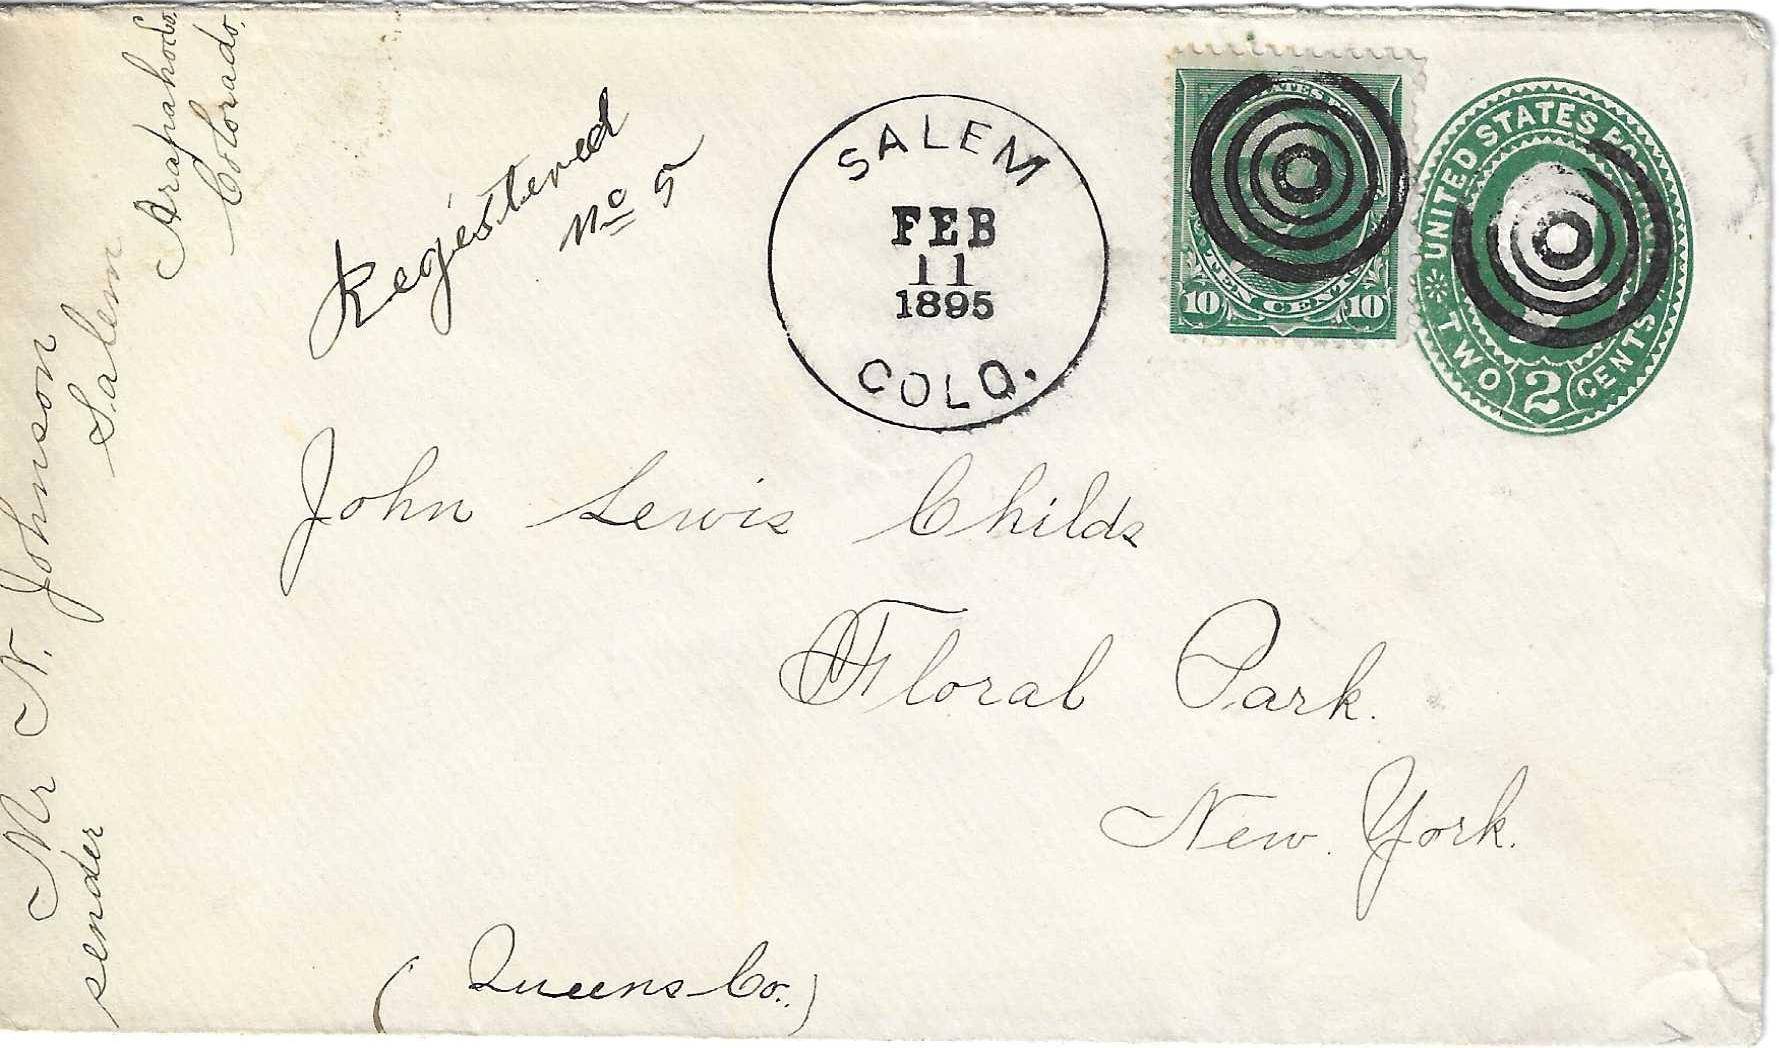 Mr N. Johnson
sender
Salem
Arapahoe Co.
Colorado.
Registered
No 5
SALEM
FEB
11
1895
COLO.
TEN CENTS
10 10
UNITED STATES POSTAGE
TWO 2 CENTS
John Lewis Childs
Floral Park.
New York.
(Queens Co.)